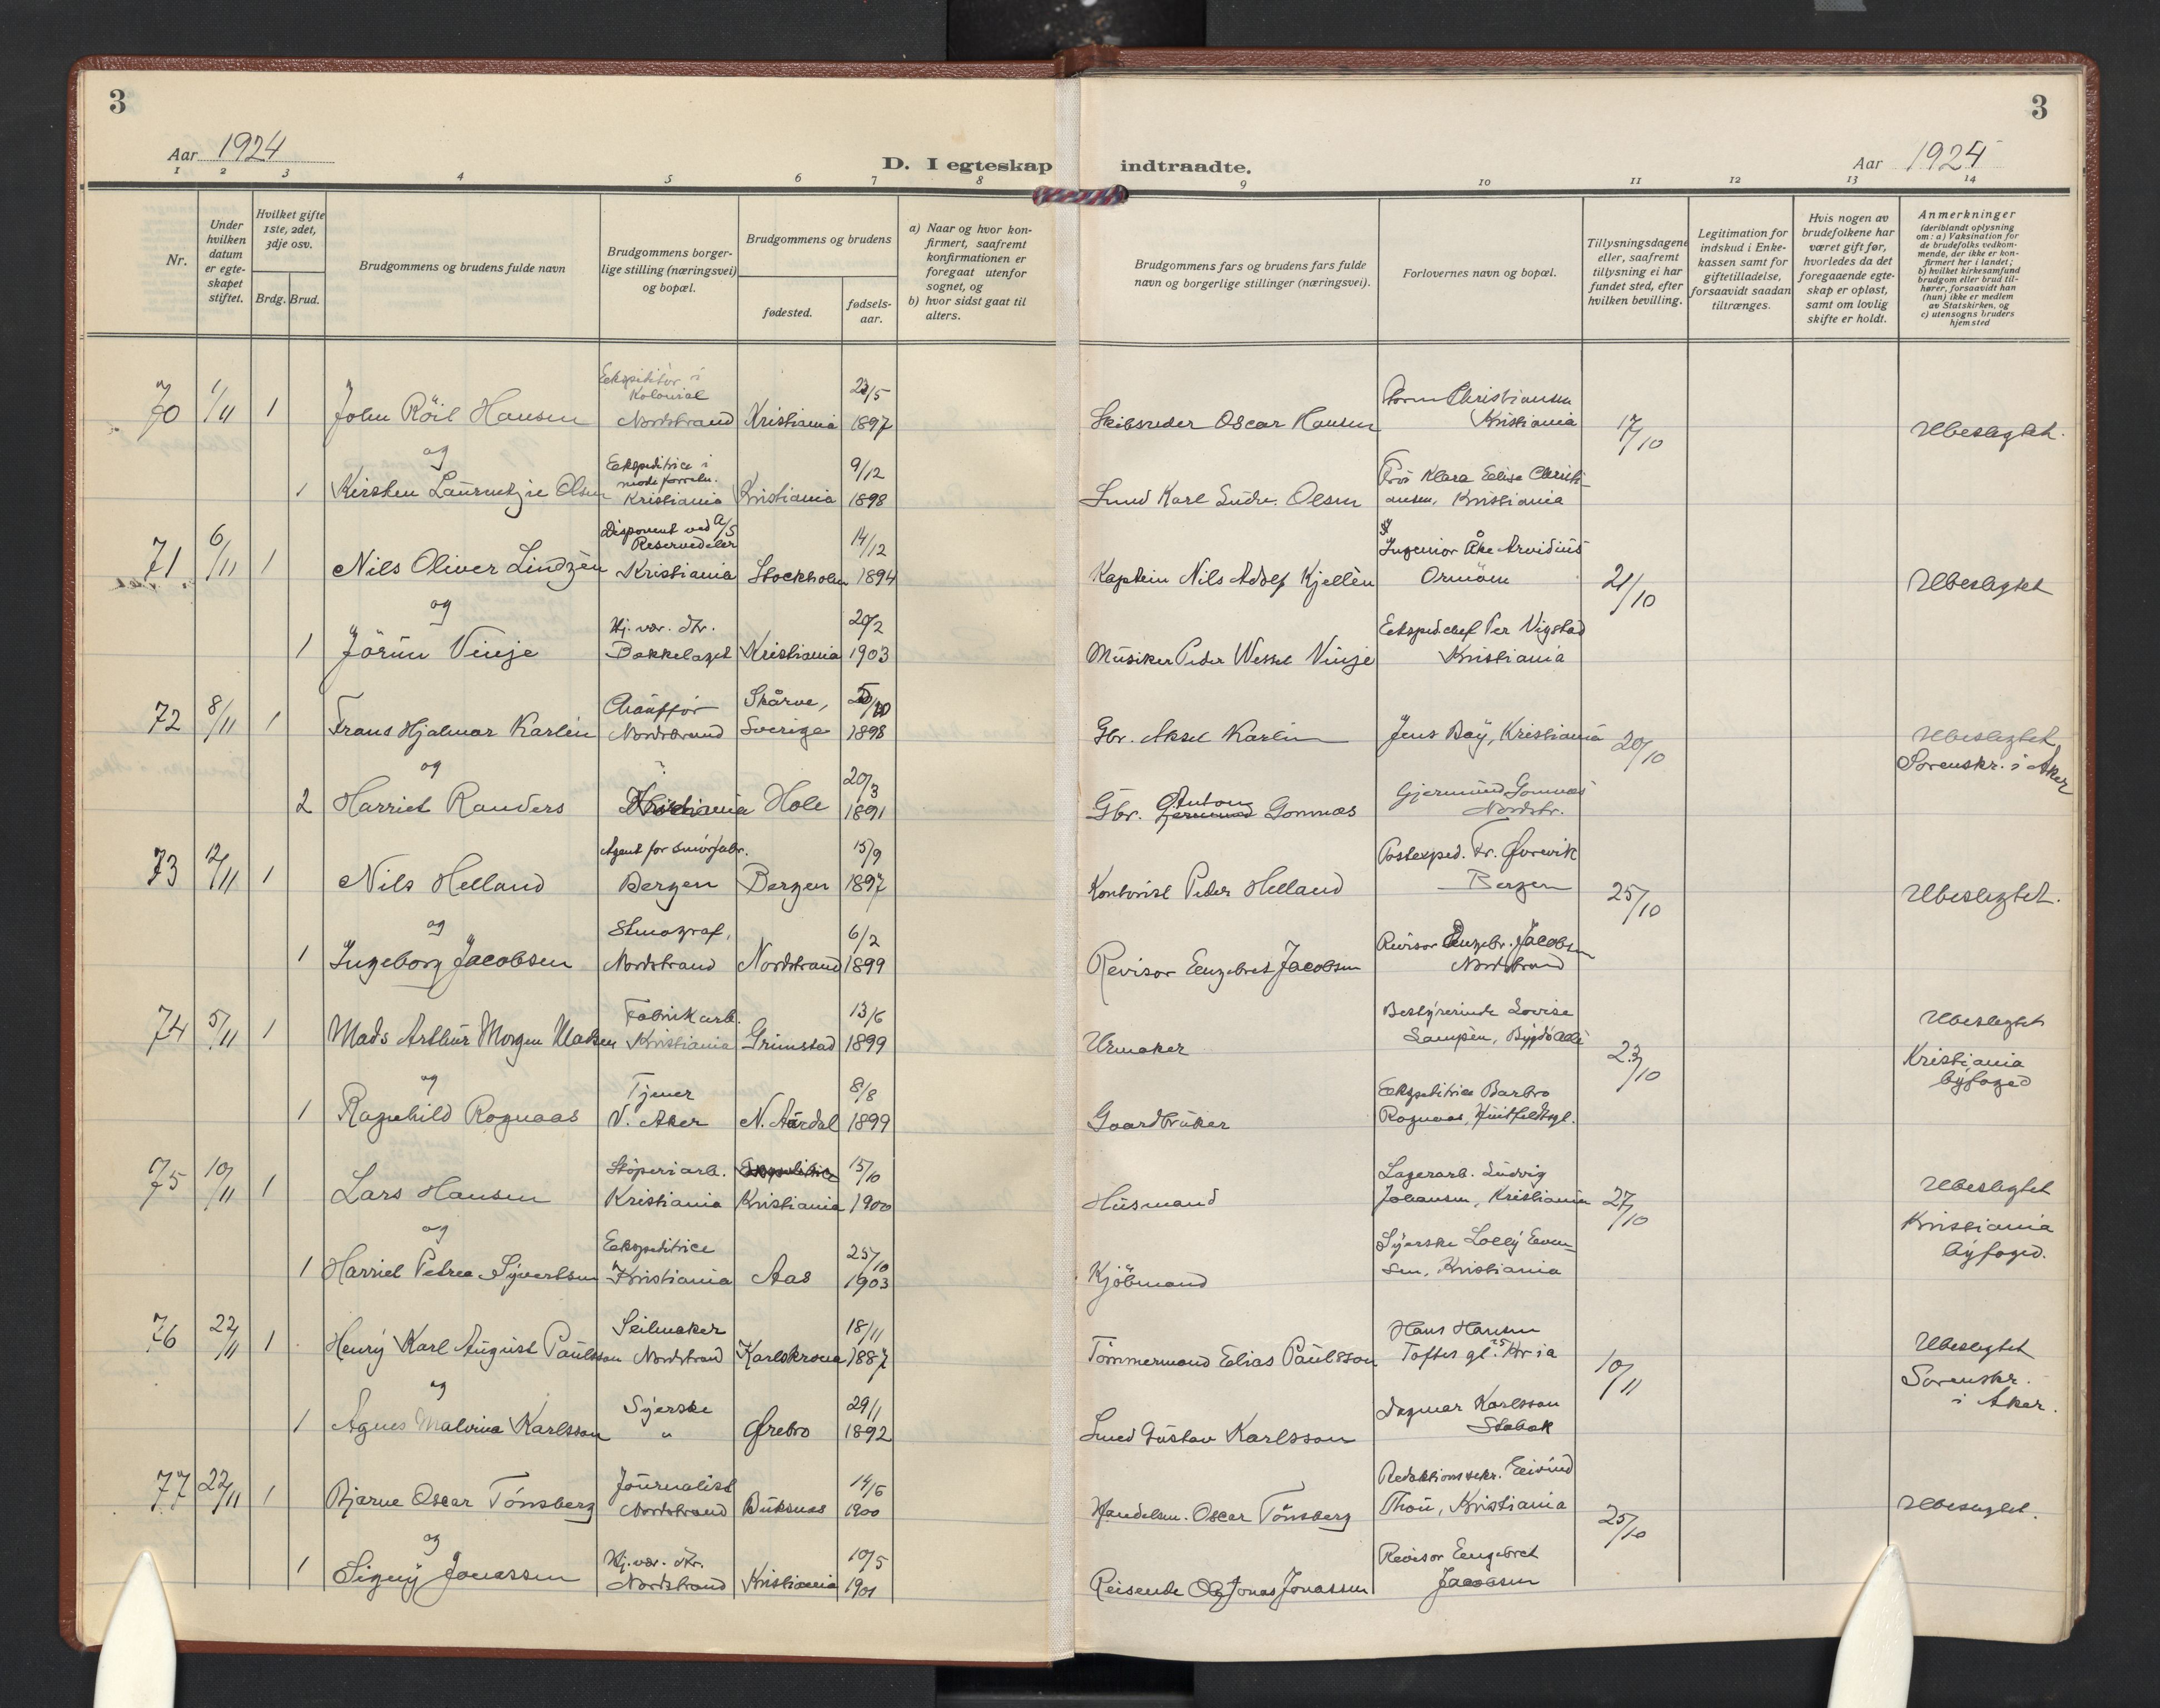 3
3
Aar 1924
D. I egteskap indtraadte.
Aar 1924
1 2 3 4 5 6 7 8 9 10 11 12 13 14
Nr.
Under hvilken datum er egteskapet stiftet.
Hvilket gifte 1ste, 2det, 3dje osv.
Brdg. Brud.
Brudgommens og brudens fulde navn
Brudgommens borgerlige stilling (næringsvei) og bopæl.
Brudgommens og brudens
fødested.
fødselsaar.
a) Naar og hvor konfirmert, saafremt konfirmationen er foregaat utenfor sognet, og
b) hvor sidst gaat til alters.
Brudgommens fars og brudens fars fulde navn og borgerlige stillinger (næringsvei).
Forlovernes navn og bopæl.
Tillysningsdagene eller, saafremt tillysning ei har fundet sted, efter hvilken bevilling.
Legitimation for indskud i Enkekassen samt for giftetilladelse, forsaavidt saadan tiltrænges.
Hvis nogen av brudefolkene har været gift før, hvorledes da det foregaaende egteskap er opløst, samt om lovlig skifte er holdt.
Anmerkninger (deriblandt oplysning om: a) Vaksination for de brudefolks vedkommende, der ikke er konfirmert her i landet; b) hvilket kirkesamfund brudgom eller brud tilhører, forsaavidt han (hun) ikke er medlem av Statskirken, og c) utensogns bruders hjemsted
70 1/11 1 John Röil Hansen Ekspeditör i Kolonial Nordstrand Kristiania 23/5 1897 Skibsreder Oscar Hansen Christiansen Kristiania 17/10 Ubeslegtet.
og
1 Kirsten Laurentzie Olsen Ekspeditrice i modeforretn. Kristiania Kristiania 9/12 1898 Smed Karl Ludv. Olsen Frö Klara Elise Christiansen, Kristiania
71 6/11 1 Nils Oliver Lindzèn Disponent ved A/S Reservedeler Kristiania Stockholm 14/12 1894 Kaptein Nils Adolf Kjellèn Ingeniör Åke Arvidius Ormöen 21/10 Ubeslegtet
og
1 Jörun Vinje Hj. vær. dtr. Bækkelaget Kristiania 20/2 1903 Musiker Peder Wessel Vinje Eksped.chef Per Vigstad Kristiania
72 8/11 1 Frans Hjalmar Karlèn Chaufför Nordstrand Skårve, Sverige 1898 Gbr. Aksel Karlèn Jens Bay, Kristiania 20/10 Ubeslegtet Sorenskr. i Aker
og
2 Harriet Randers Kristiania Hole 20/3 1891 Gbr. Anton Gomnæs Gjermund Gomnæs Nordstr.
73 12/11 1 Nils Helland Agent for smörfabr. Bergen Bergen 15/9 1897 Kontorist Peder Helland Postexped. Fr. Øvrevik Bergen 25/10 Ubeslegtet.
og
1 Ingeborg Jacobsen Stenograf, Nordstrand Nordstrand 6/2 1899 Revisor Engebret Jacobsen Revisor Engebr. Jacobsen Nordstrand
74 5/11 1 Mads Arthur Morgen Madsen Fabrikarb. Kristiania Grimstad 13/6 1899 Urmaker Bestyrerinde Lovise Sampèn, Bygdö Allè 23/10 Ubeslegtet Kristiania byfoged
og
1 Ragnhild Rognaas Tjener V. Aker N. Aurdal 8/8 1899 Gaardbruker Ekspeditrice Barbro Rognaas, Huitfeldtsgt.
75 10/11 1 Lars Hansen Stöperiarb. Kristiania Ekspeditrice Kristiania 15/10 1900 Husmand Lagerarb. Ludvig Johansen, Kristiania 27/10 Ubeslegtet Kristiania byfoged.
og
1 Harriet Petrea Syvertsen Ekspeditrice Kristiania Aas 25/10 1903 Kjöbmand Syerske Lolly Evensen, Kristiania
76 22/11 1 Henry Karl August Paulsson Seilmaker Nordstrand Karlskrona 18/11 1887 Tömmermand Elias Paulsson Hans Hansen Toftes gt. 25 Kr.ia 10/11 Ubeslegtet Sorenskr. i Aker.
og
1 Agnes Malvina Karlsson Syerske " Ørebro 29/1 1892 Smed Gustav Karlsson Dagmar Karlsson Stabæk
77 22/11 1 Bjarne Oscar Tönsberg Journalist Nordstrand Buksnes 14/6 1900 Handelsm. Oscar Tönsberg Redaktionssekr. Eivind Thon, Kristiania 25/10 Ubeslegtet.
og
1 Signy Jonassen Hj. vær. dtr. Nordstrand Kristiania 10/5 1901 Reisende Jonas Jonassen Revisor Engebret Jacobsen